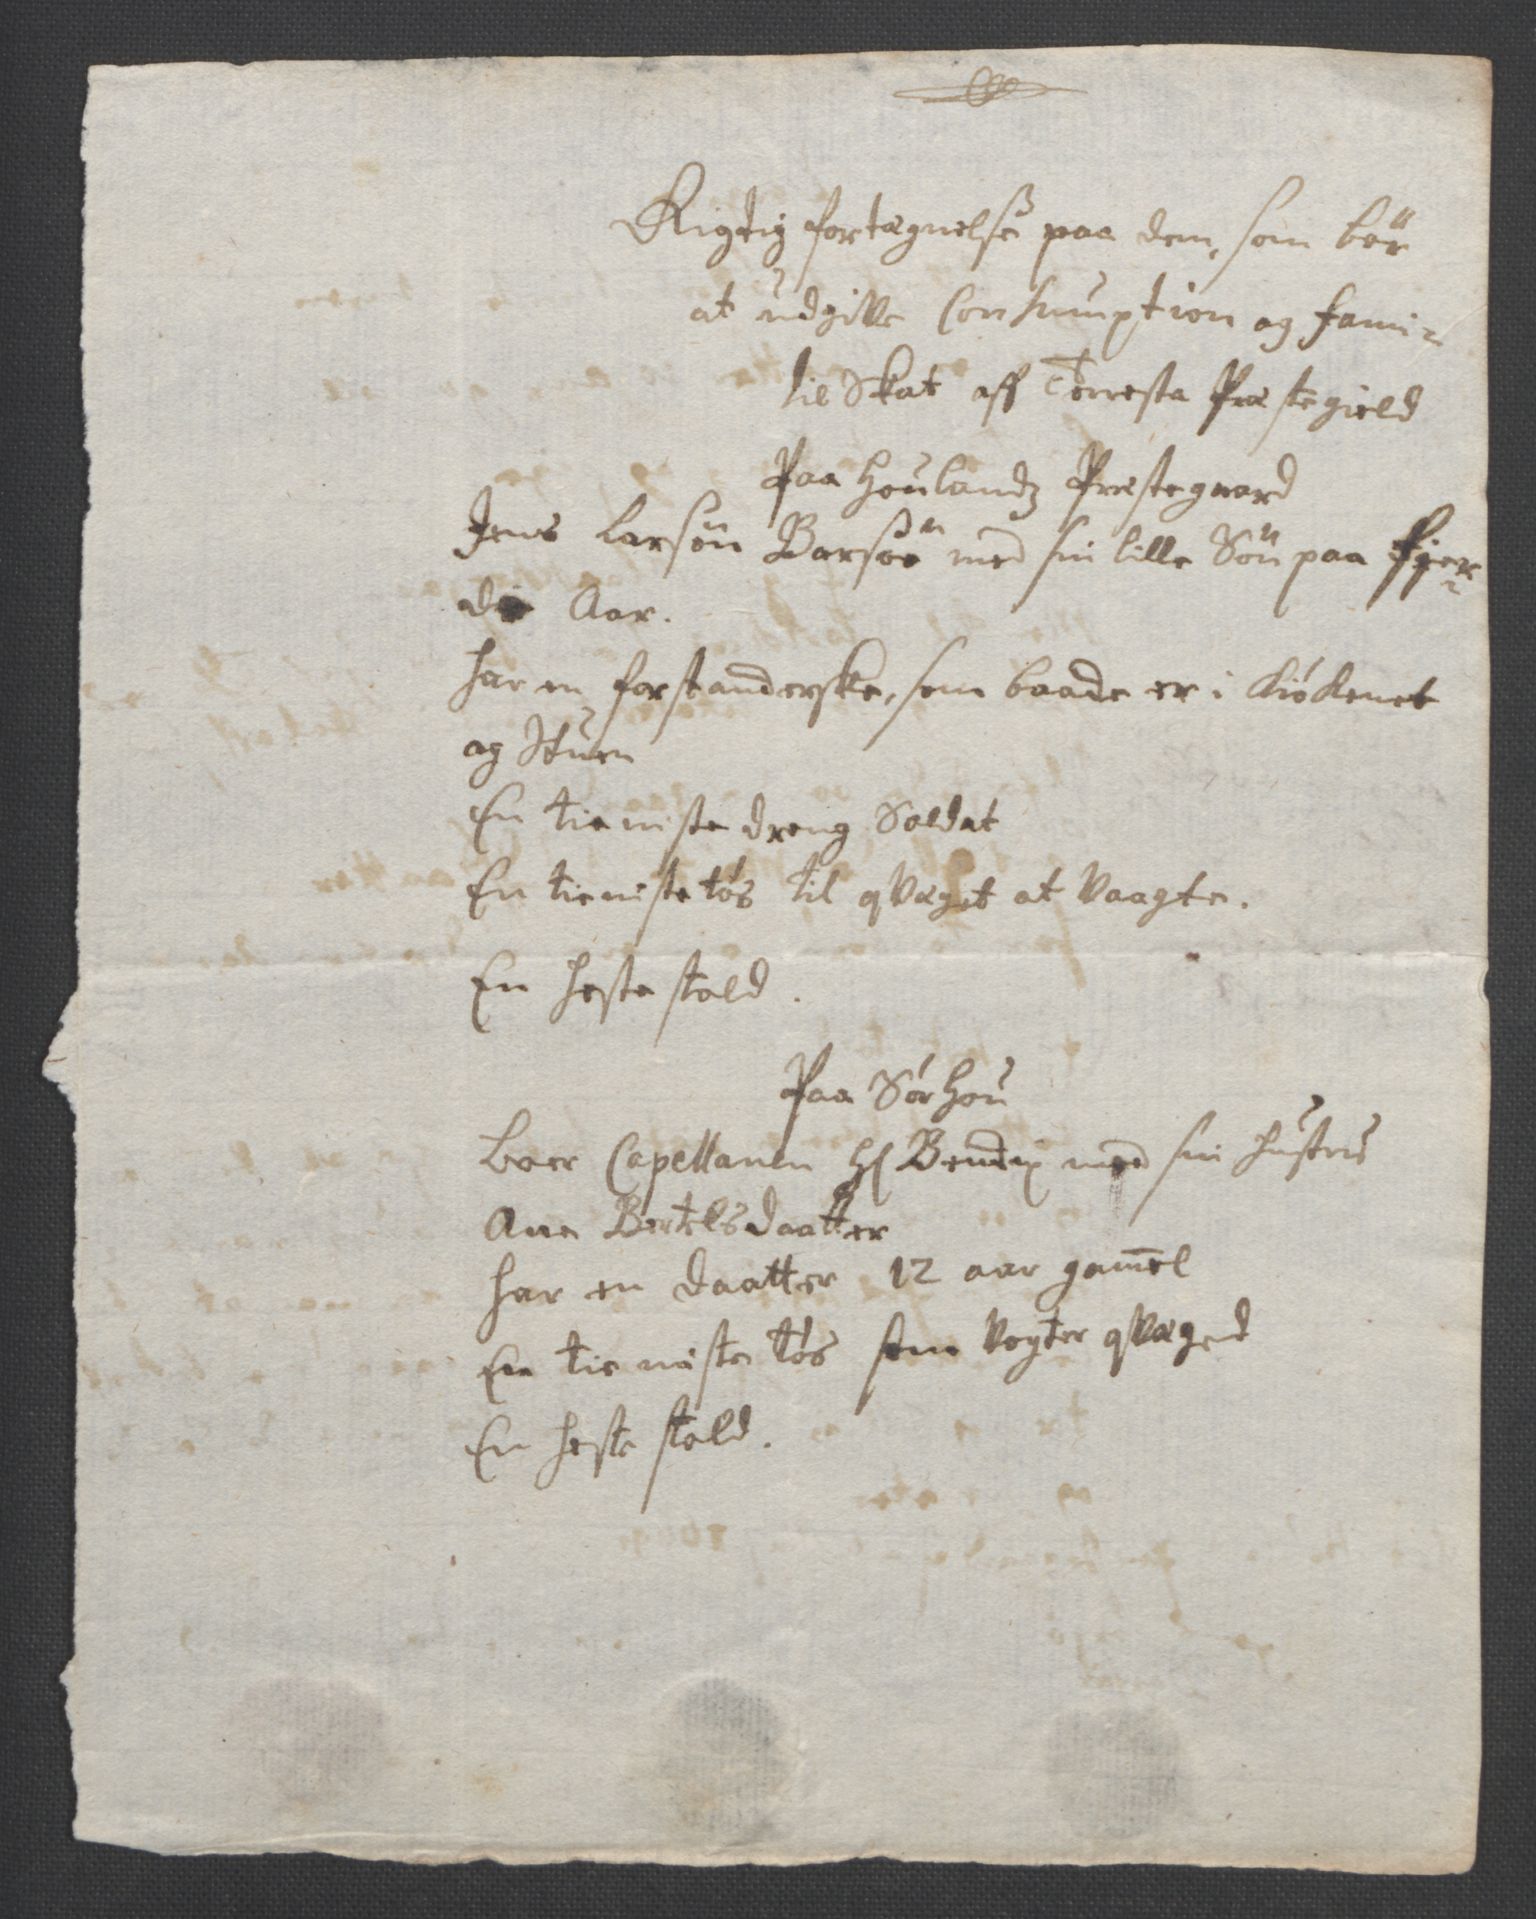 Rigtig fortegnelse paa dem, som bör
at udgifve Consumption og fami-
lie Skat aff Torresta Præstegield
Paa Houlandz Præstegaard
Jens Larsön Barsöe med sin lille Sön paa fjer-
de Aar.
har en forstanderske, som baade er i kiökenet
og Stuen
En tieniste dreng Soldat
En tieniste tös til qvæget at vaagte.
En heste stald.
Paa Sör Hou
boer Capellanen Hr Bendix med sin hustru
Ane Bertelsdaatter
har en daatter 12 aar gam̄el
En tieniste tös som vogter qvæged
En heste stald.